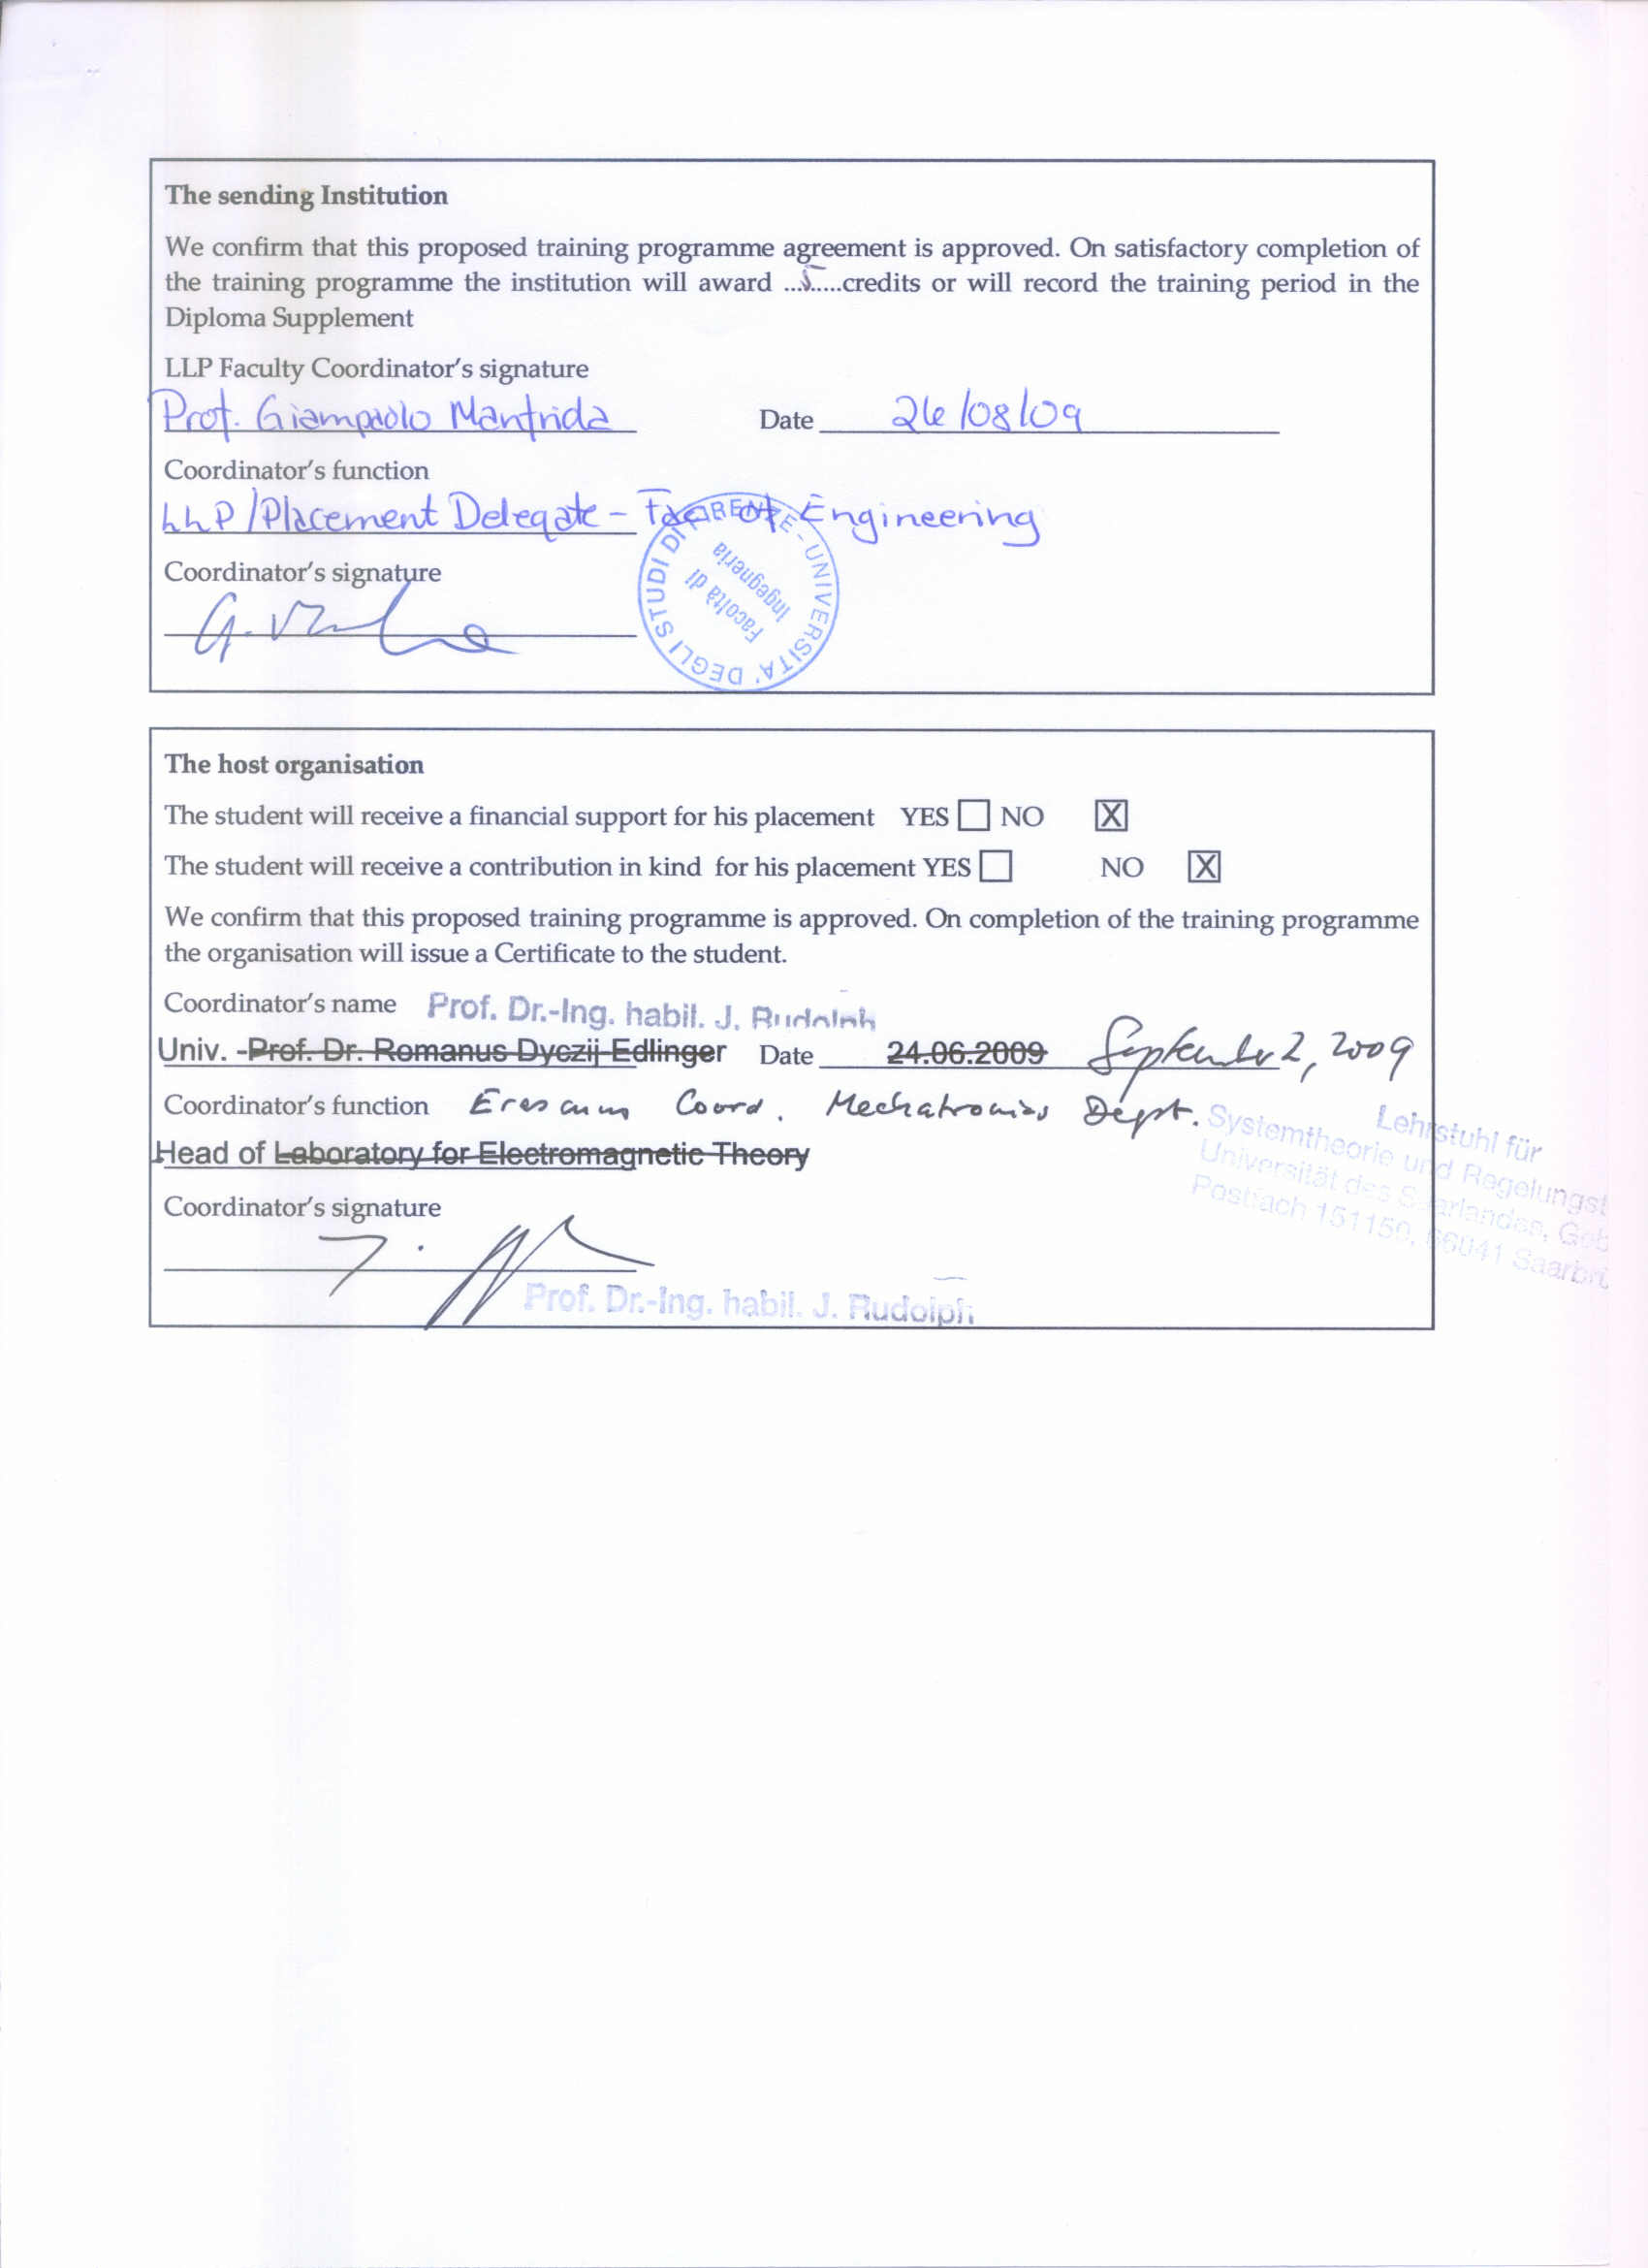 The sending Institution
We confirm that this proposed training programme agreement is approved. On satisfactory completion of
the training programme the institution will award ...5.....credits or will record the training period in the
Diploma Supplement
LLP Faculty Coordinator's signature
Prof. Giampaolo Manfrida Date 26/08/09
Coordinator's function
LLP/Placement Delegate - Fac. of Engineering
DEGLI STUDI DI FIRENZE - UNIVERSITA'
Facoltà di
Ingegneria
Coordinator's signature
The host organisation
The student will receive a financial support for his placement YES NO X
The student will receive a contribution in kind for his placement YES NO X
We confirm that this proposed training programme is approved. On completion of the training programme
the organisation will issue a Certificate to the student.
Coordinator's name Prof. Dr.-Ing. habil. J. Rudolph
Univ. -Prof. Dr. Romanus Dyczij-Edlinger Date 24.06.2009 September 2, 2009
Coordinator's function Erasmus Coord. Mechatronics Dept.
Head of Laboratory for Electromagnetic Theory
Lehrstuhl für
Systemtheorie und Regelungst
Universität des Saarlandes, Geb
Postfach 151150, 66041 Saarbrü
Coordinator's signature
Prof. Dr.-Ing. habil. J. Rudolph